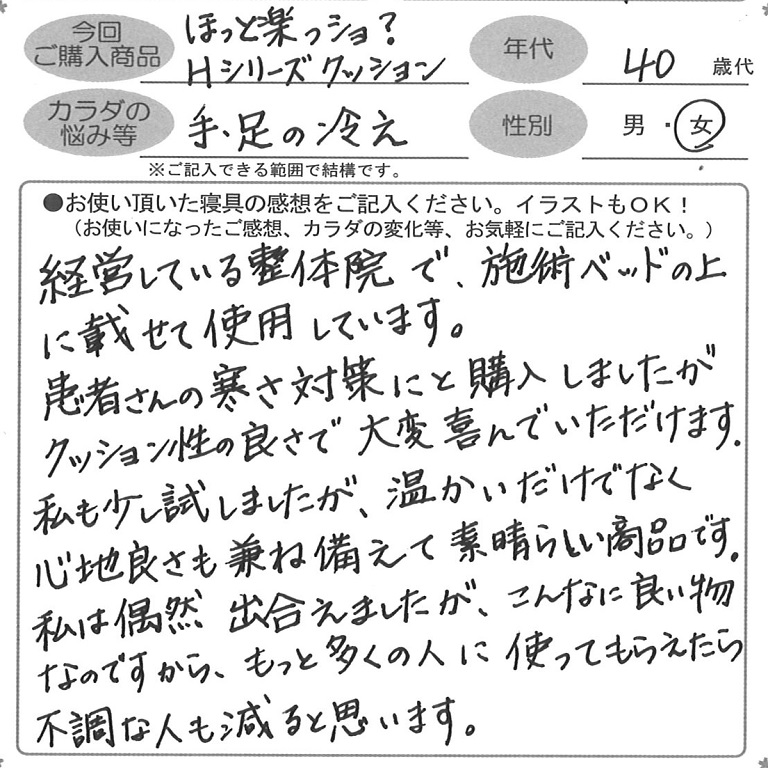 今回
ご購入商品
ほっと楽っショ?
Hシリーズクッション
年代
40 歳代
カラダの
悩み等
手、足の冷え
性別
男・女
※ご記入できる範囲で結構です。
●お使い頂いた寝具の感想をご記入ください。イラストもOK!
(お使いになったご感想、カラダの変化等、お気軽にご記入ください。)
経営している整体院で、施術ベッドの上
に載せて使用しています。
患者さんの寒さ対策にと購入しましたが
クッション性の良さで大変喜んでいただけます。
私も少し試しましたが、温かいだけでなく
心地良さも兼ね備えて素晴らしい商品です。
私は偶然出合えましたが、こんなに良い物
なのですから、もっと多くの人に使ってもらえたら
不調な人も減ると思います。